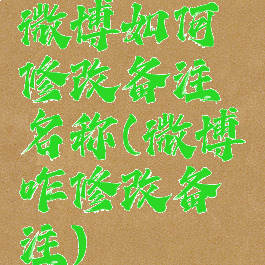 微博如何
修改备注
名称(微博
咋修改备
注)